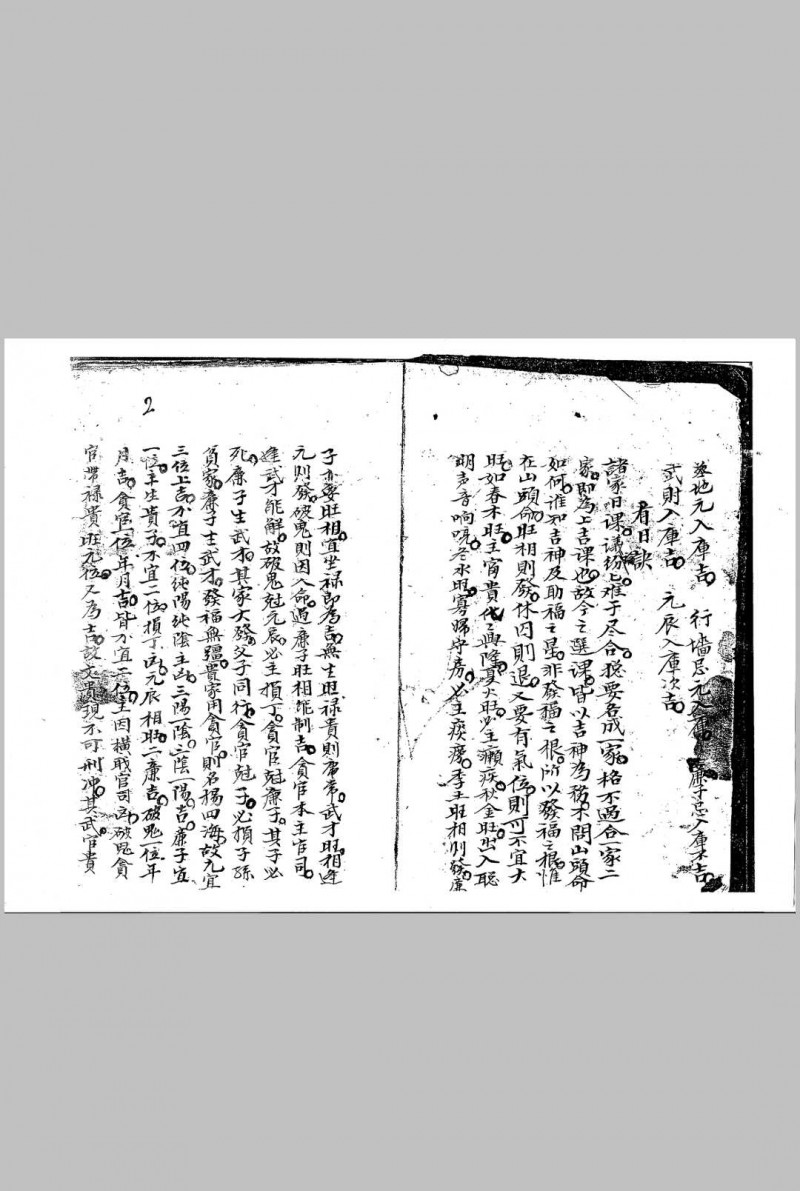 墓地元入庫吉。 行墻忌元入庫。 廉子忌入庫不吉。
武財入庫吉。 元辰入庫次吉。
看日訣
諸家日課議紛紛難于尽合。總要各成一家。格不過合一家二
家。即為上吉課也。故今之選課。皆以吉神為務。不問山頭命
如何。誰知吉神乃助福之星。非發福之根。所以發福之根。惟
在山頭命旺相則發。休囚則退。又要有氣位則可。不宜大
旺。如春木旺。主富貴代代興隆。夏火旺。必主癩疾。秋金旺。出入聡
明声音响喨。冬水旺。寡婦守房。必主痰癆。季土旺相則發。廉
子亦要旺相。宜坐禄即為吉。無生旺禄貴則庸常。武才旺相逢
元則發。破鬼則因入命。遇廉子旺相能制吉。貪官本主官司。
逢武才能解。故破鬼尅元辰。必主損丁。貪官尅廉子。其子必
死。廉子生武才。其家大發。父子同行。貪官尅子。必損子孫
貧家。廉子生武才。發福無疆。貴家用貪官。則名揚四海。故元宜
三位上吉。不宜四位。純陽純陰主凶。三陽一陰。三陰一陽吉。廉子宜
一位。主生貴子。不宜二位。損丁凶。元辰相旺。二廉吉。破鬼一位年
月吉。貪官一位年月吉。皆不宜二位。主因横戝官司凶。破鬼貪
官帶禄貴旺元位。又為吉。設文貴現。不可刑冲。其武官貴
2